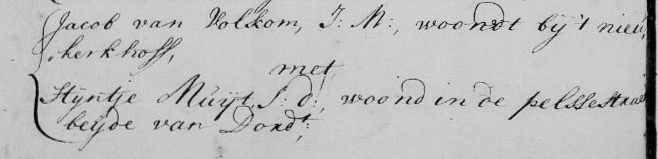 Jacob van Volkom, J: M:, woondt bij 't nieu,
kerkhoff,
met
Stijntje Muijt, J: d:, woond in de pelssestraet
beijde van Dordt;